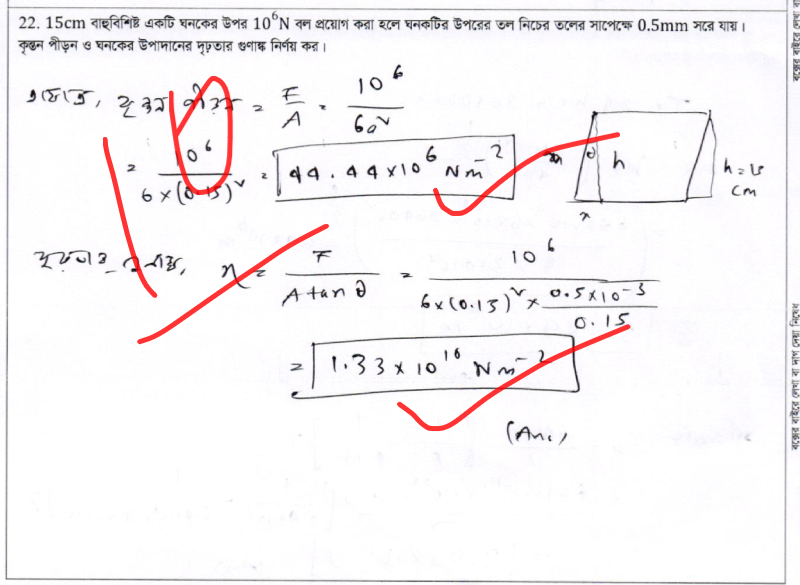 22. 15cm বাহুবিশিষ্ট একটি ঘনকের উপর 10⁶N বল প্রয়োগ করা হলে ঘনকটির উপরের তল নিচের তলের সাপেক্ষে 0.5mm সরে যায়।
কৃন্তন পীড়ন ও ঘনকের উপাদানের দৃঢ়তার গুণাঙ্ক নির্ণয় কর।
এক্ষেত্রে, কৃন্তন পীড়ন = F/A = 10⁶/6a²
= 10⁶/6×(0.15)² = 44.44×10⁶ Nm⁻²
θ h h = 15 cm
x
দৃঢ়তার গুণাঙ্ক, η = F/A tanθ = 10⁶/(6×(0.15)² × (0.5×10⁻³/0.15))
= 1.33×10¹⁰ Nm⁻²
(Ans)
বক্সের বাইরে লেখা বা দাগ দেয়া নিষেধ